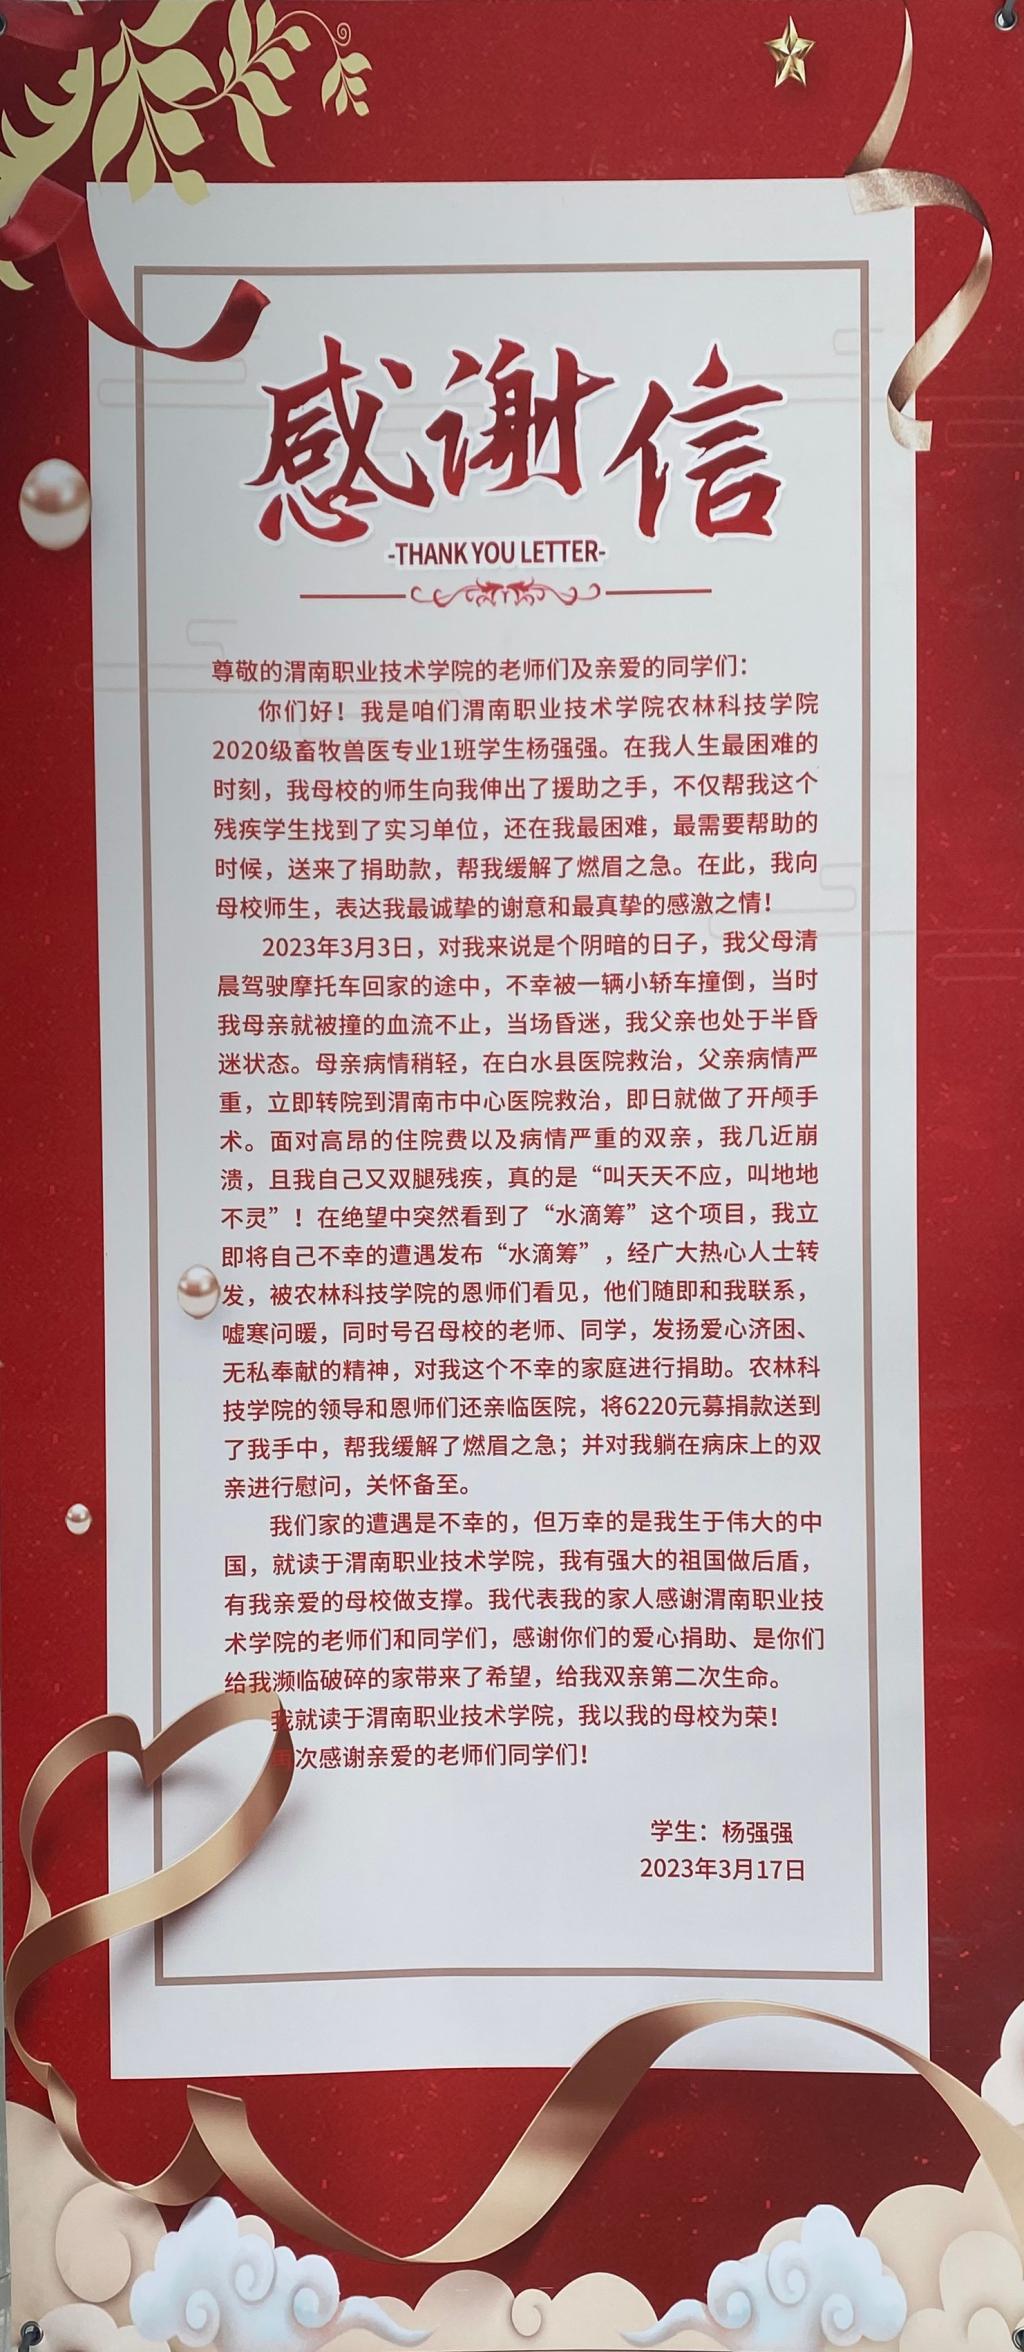 感谢信
-THANK YOU LETTER-
尊敬的渭南职业技术学院的老师们及亲爱的同学们：
你们好！我是咱们渭南职业技术学院农林科技学院
2020级畜牧兽医专业1班学生杨强强。在我人生最困难的
时刻，我母校的师生向我伸出了援助之手，不仅帮我这个
残疾学生找到了实习单位，还在我最困难，最需要帮助的
时候，送来了捐助款，帮我缓解了燃眉之急。在此，我向
母校师生，表达我最诚挚的谢意和最真挚的感激之情！
2023年3月3日，对我来说是个阴暗的日子，我父母清
晨驾驶摩托车回家的途中，不幸被一辆小轿车撞倒，当时
我母亲就被撞的血流不止，当场昏迷，我父亲也处于半昏
迷状态。母亲病情稍轻，在白水县医院救治，父亲病情严
重，立即转院到渭南市中心医院救治，即日就做了开颅手
术。面对高昂的住院费以及病情严重的双亲，我几近崩
溃，且我自己又双腿残疾，真的是“叫天天不应，叫地地
不灵”！在绝望中突然看到了“水滴筹”这个项目，我立
即将自己不幸的遭遇发布“水滴筹”，经广大热心人士转
发，被农林科技学院的恩师们看见，他们随即和我联系，
嘘寒问暖，同时号召母校的老师、同学，发扬爱心济困、
无私奉献的精神，对我这个不幸的家庭进行捐助。农林科
技学院的领导和恩师们还亲临医院，将6220元募捐款送到
了我手中，帮我缓解了燃眉之急；并对我躺在病床上的双
亲进行慰问，关怀备至。
我们家的遭遇是不幸的，但万幸的是我生于伟大的中
国，就读于渭南职业技术学院，我有强大的祖国做后盾，
有我亲爱的母校做支撑。我代表我的家人感谢渭南职业技
术学院的老师们和同学们，感谢你们的爱心捐助、是你们
给我濒临破碎的家带来了希望，给我双亲第二次生命。
我就读于渭南职业技术学院，我以我的母校为荣！
再次感谢亲爱的老师们同学们！
学生：杨强强
2023年3月17日